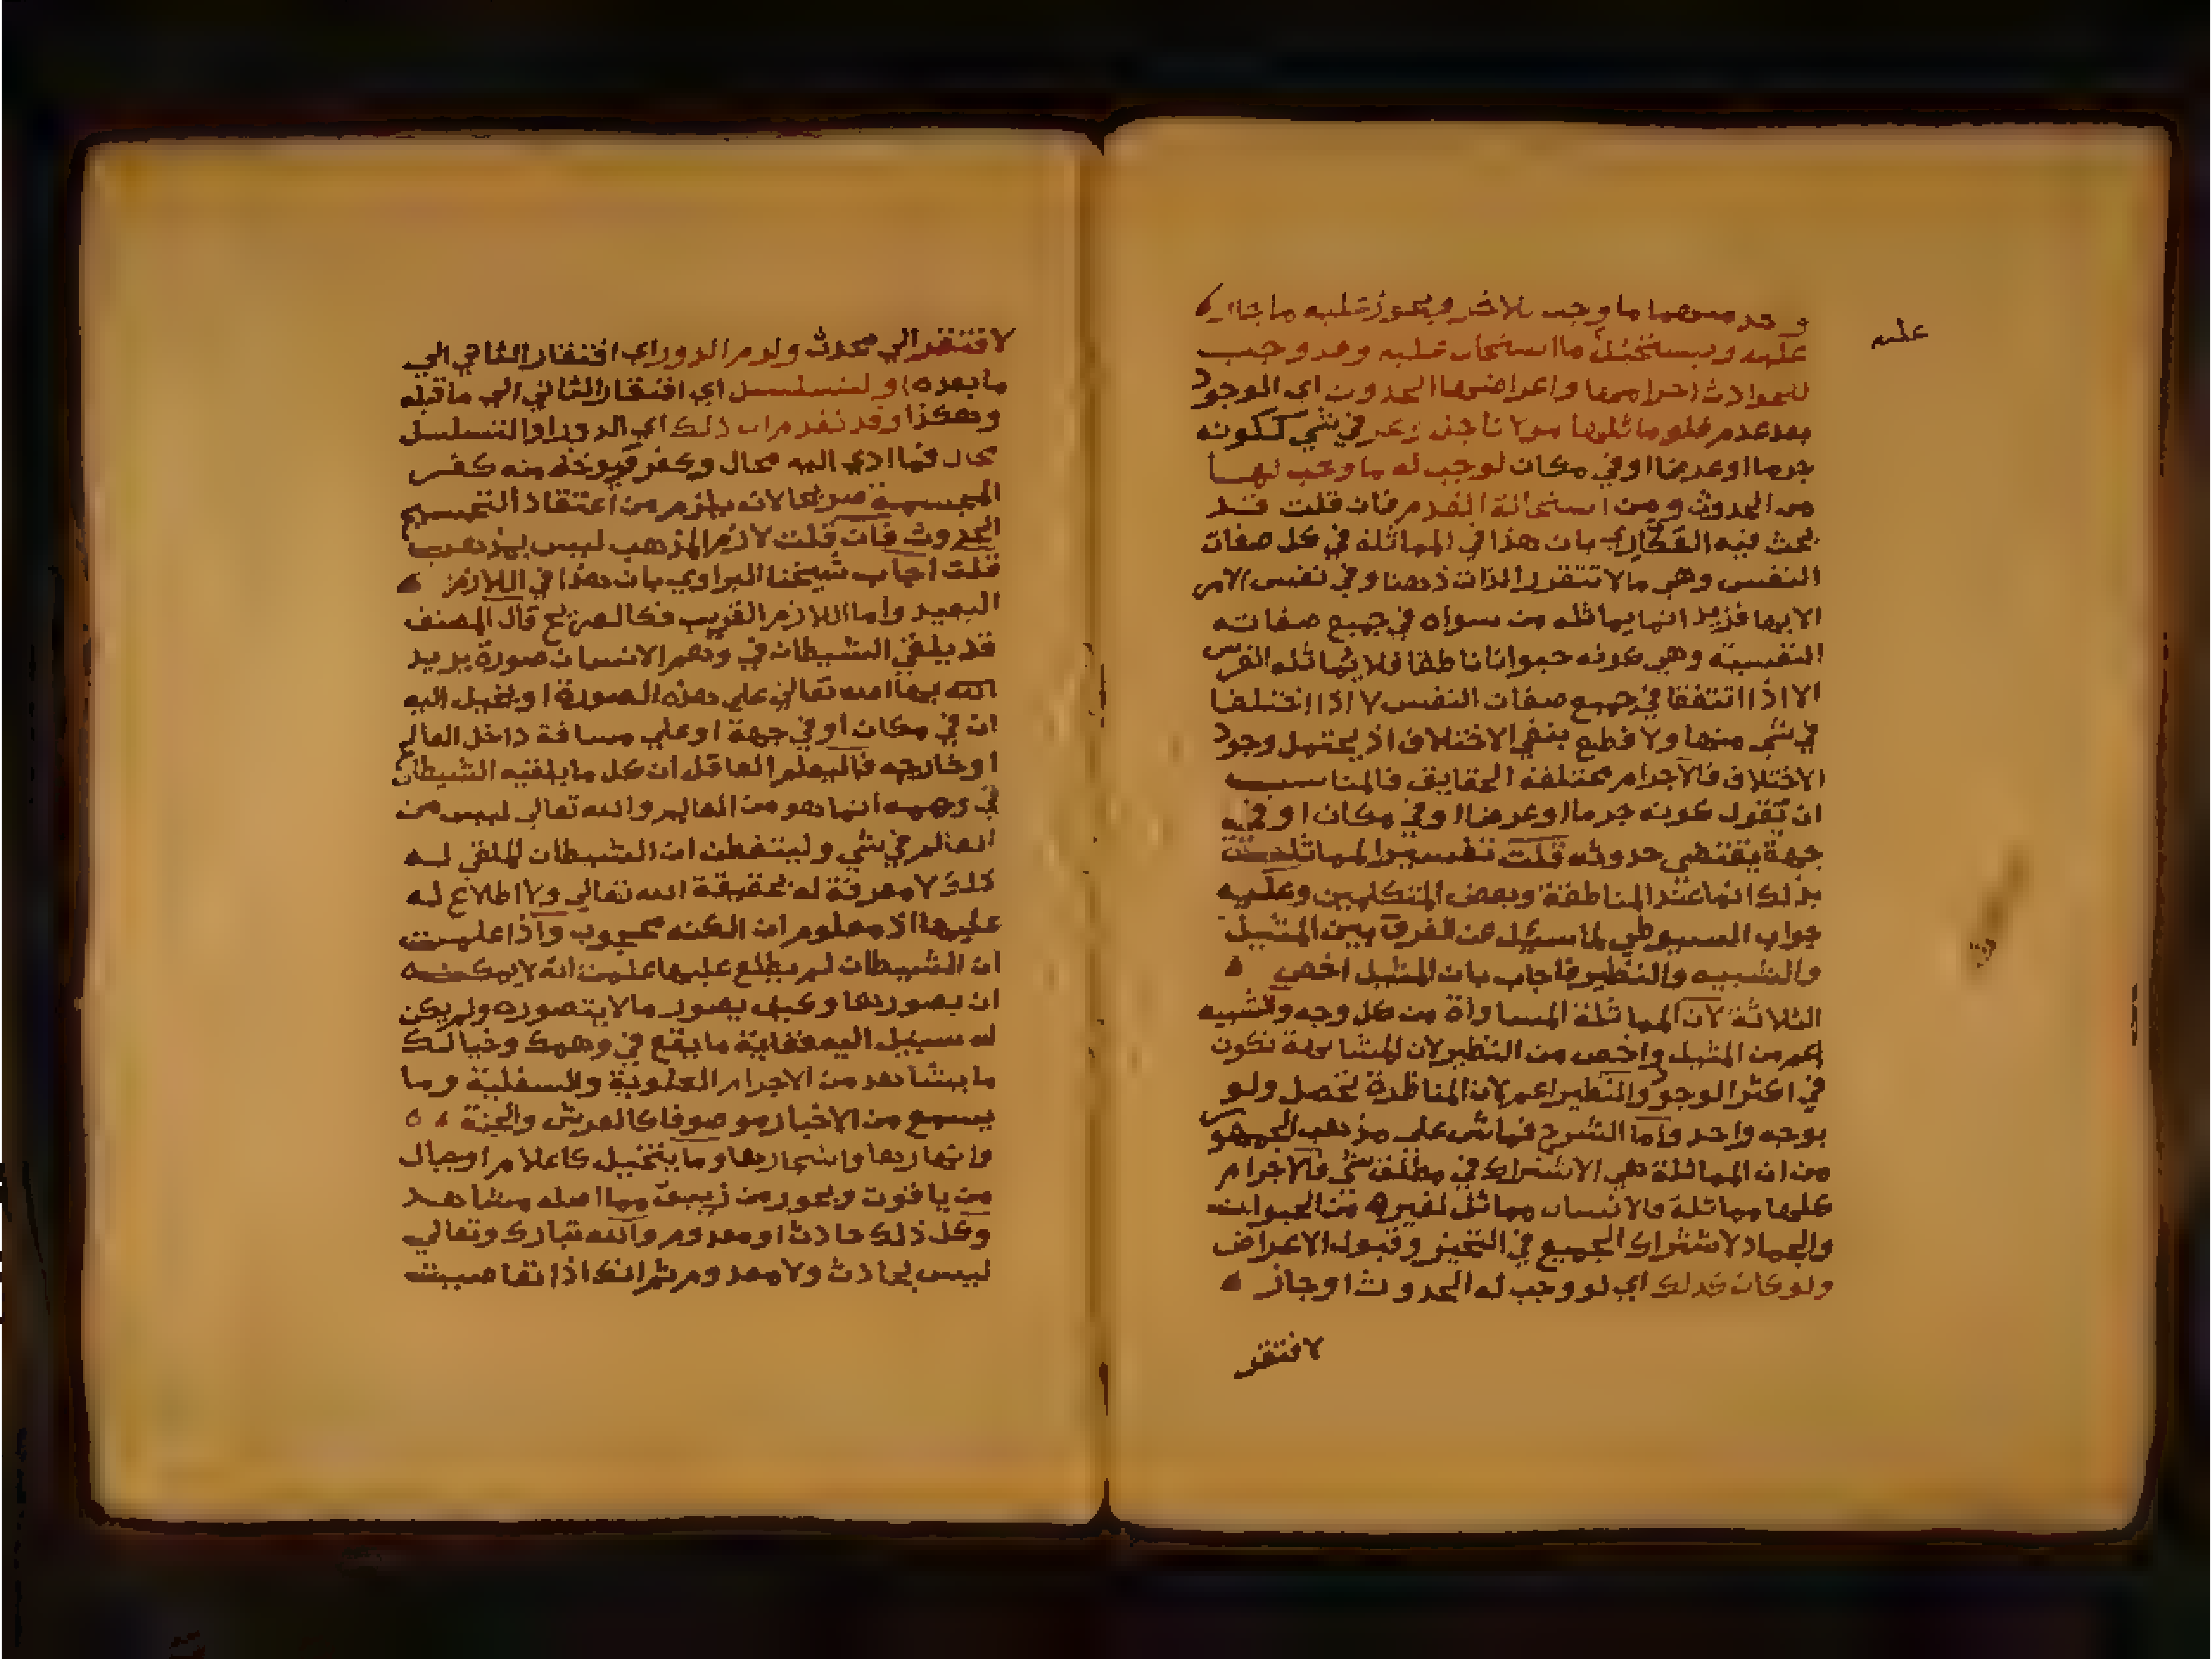 عليه
واحد منهما ما وجب للاخر ويجوز عليه ما جاز
عليه ويستحيل ما استحال عليه وقد وجب
للحوادث اجرامها واعراضها الحدوث اي الوجود
بعد عدم فلو ماثلها مولانا جل وعز في شي ككونه
جرما او عرضا او في مكان لوجب له ما وجب لها
من الحدوث ومن استحالة القدم فان قلت قد
بحث فيه بان هذا في المماثلة في كل صفات
النفس وهي مالا تتقرر الذات ذهنا وفي نفس الامر
الا بها فزيد انما يماثله من سواه في جميع صفاته
النفسية وهي كونه حيوانا ناطقا فلا يماثله الفرس
الا اذا اتفقا في جميع صفات النفس لا اذا اختلفا
في شي منها ولا قطع بنفي الاختلاف اذ يحتمل وجود
الاختلاف فالاجرام مختلفة الحقايق فالمناسب
ان تقول كونه جرما او عرضا او في مكان او في
جهة يقتضي حدوثه قلت تفسير المماثلة
بذلك انما عند المناطقة وبعض المتكلمين وعليه
جواب السيوطي لما سئل عن الفرق بين المثيل
والشبيه والنظير فاجاب بان المثيل اخص
الثلاثة لان المماثلة المساواة من كل وجه والشبيه
اعم من المثيل واخص من النظير لان المشابهة تكون
في اكثر الوجوه والنظير اعم لان المناظرة تحصل ولو
بوجه واحد واما الشرح فماش علي مذهب الجمهور
من ان المماثلة هي الاشتراك في مطلق شي فالاجرام
كلها مماثلة فالانسان مماثل لغيره من الحيوانات
والجماد لاشتراك الجميع في التحيز وقبول الاعراض
ولو كان كذلك اي لو وجب له الحدوث او جاز
لافتقر
لافتقر الي محدث ولزم الدور اي افتقار الثاني الي
ما بعده او التسلسل اي افتقار الثاني الي ما قبله
وهكذا وقد تقدم ان ذلك اي الدور او التسلسل
محال فما ادي اليه محال وكفر ويوخذ منه كفر
المجسمة صريحا لانه يلزم من اعتقاد التجسيم
الحدوث فان قلت لازم المذهب ليس بمذهب
قلت اجاب شيخنا البراوي بان هذا في اللازم
البعيد واما اللازم القريب فكالصريح قال المصنف
قد يلقي الشيطان في وهم الانسان صورة يريد
انه بها الله تعالي علي هذه الصورة او يخيل اليه
انه في مكان او في جهة او علي مسافة داخل العالم
او خارجه فاليعلم العاقل ان كل ما يلقيه الشيطان
في وهمه انما هو من العالم والله تعالي ليس من
العالم في شي وليتفطن ان الشيطان الملقي له
ذلك لا معرفة له بحقيقة الله تعالي ولا اطلاع له
عليها اذ معلوم ان الكنه محجوب واذا علمت
ان الشيطان لم يطلع عليها علمت انه لا يمكنه
ان يصورها وكيف يصور مالا يتصوره ولم يكن
له سبيل اليه فغاية ما يقع في وهمك وخيالك
ما يشاهد من الاجرام العلوية والسفلية وما
يسمع من الاخبار موصوفا كالعرش والجنة
وانهارها واشجارها وما يتخيل كاعلام او جبال
من ياقوت وبحور من زيبق مما اصله مشاهد
وكل ذلك حادث او معدوم والله تبارك وتعالي
ليس بحادث ولا معدوم ثم انك اذا تقاصيت